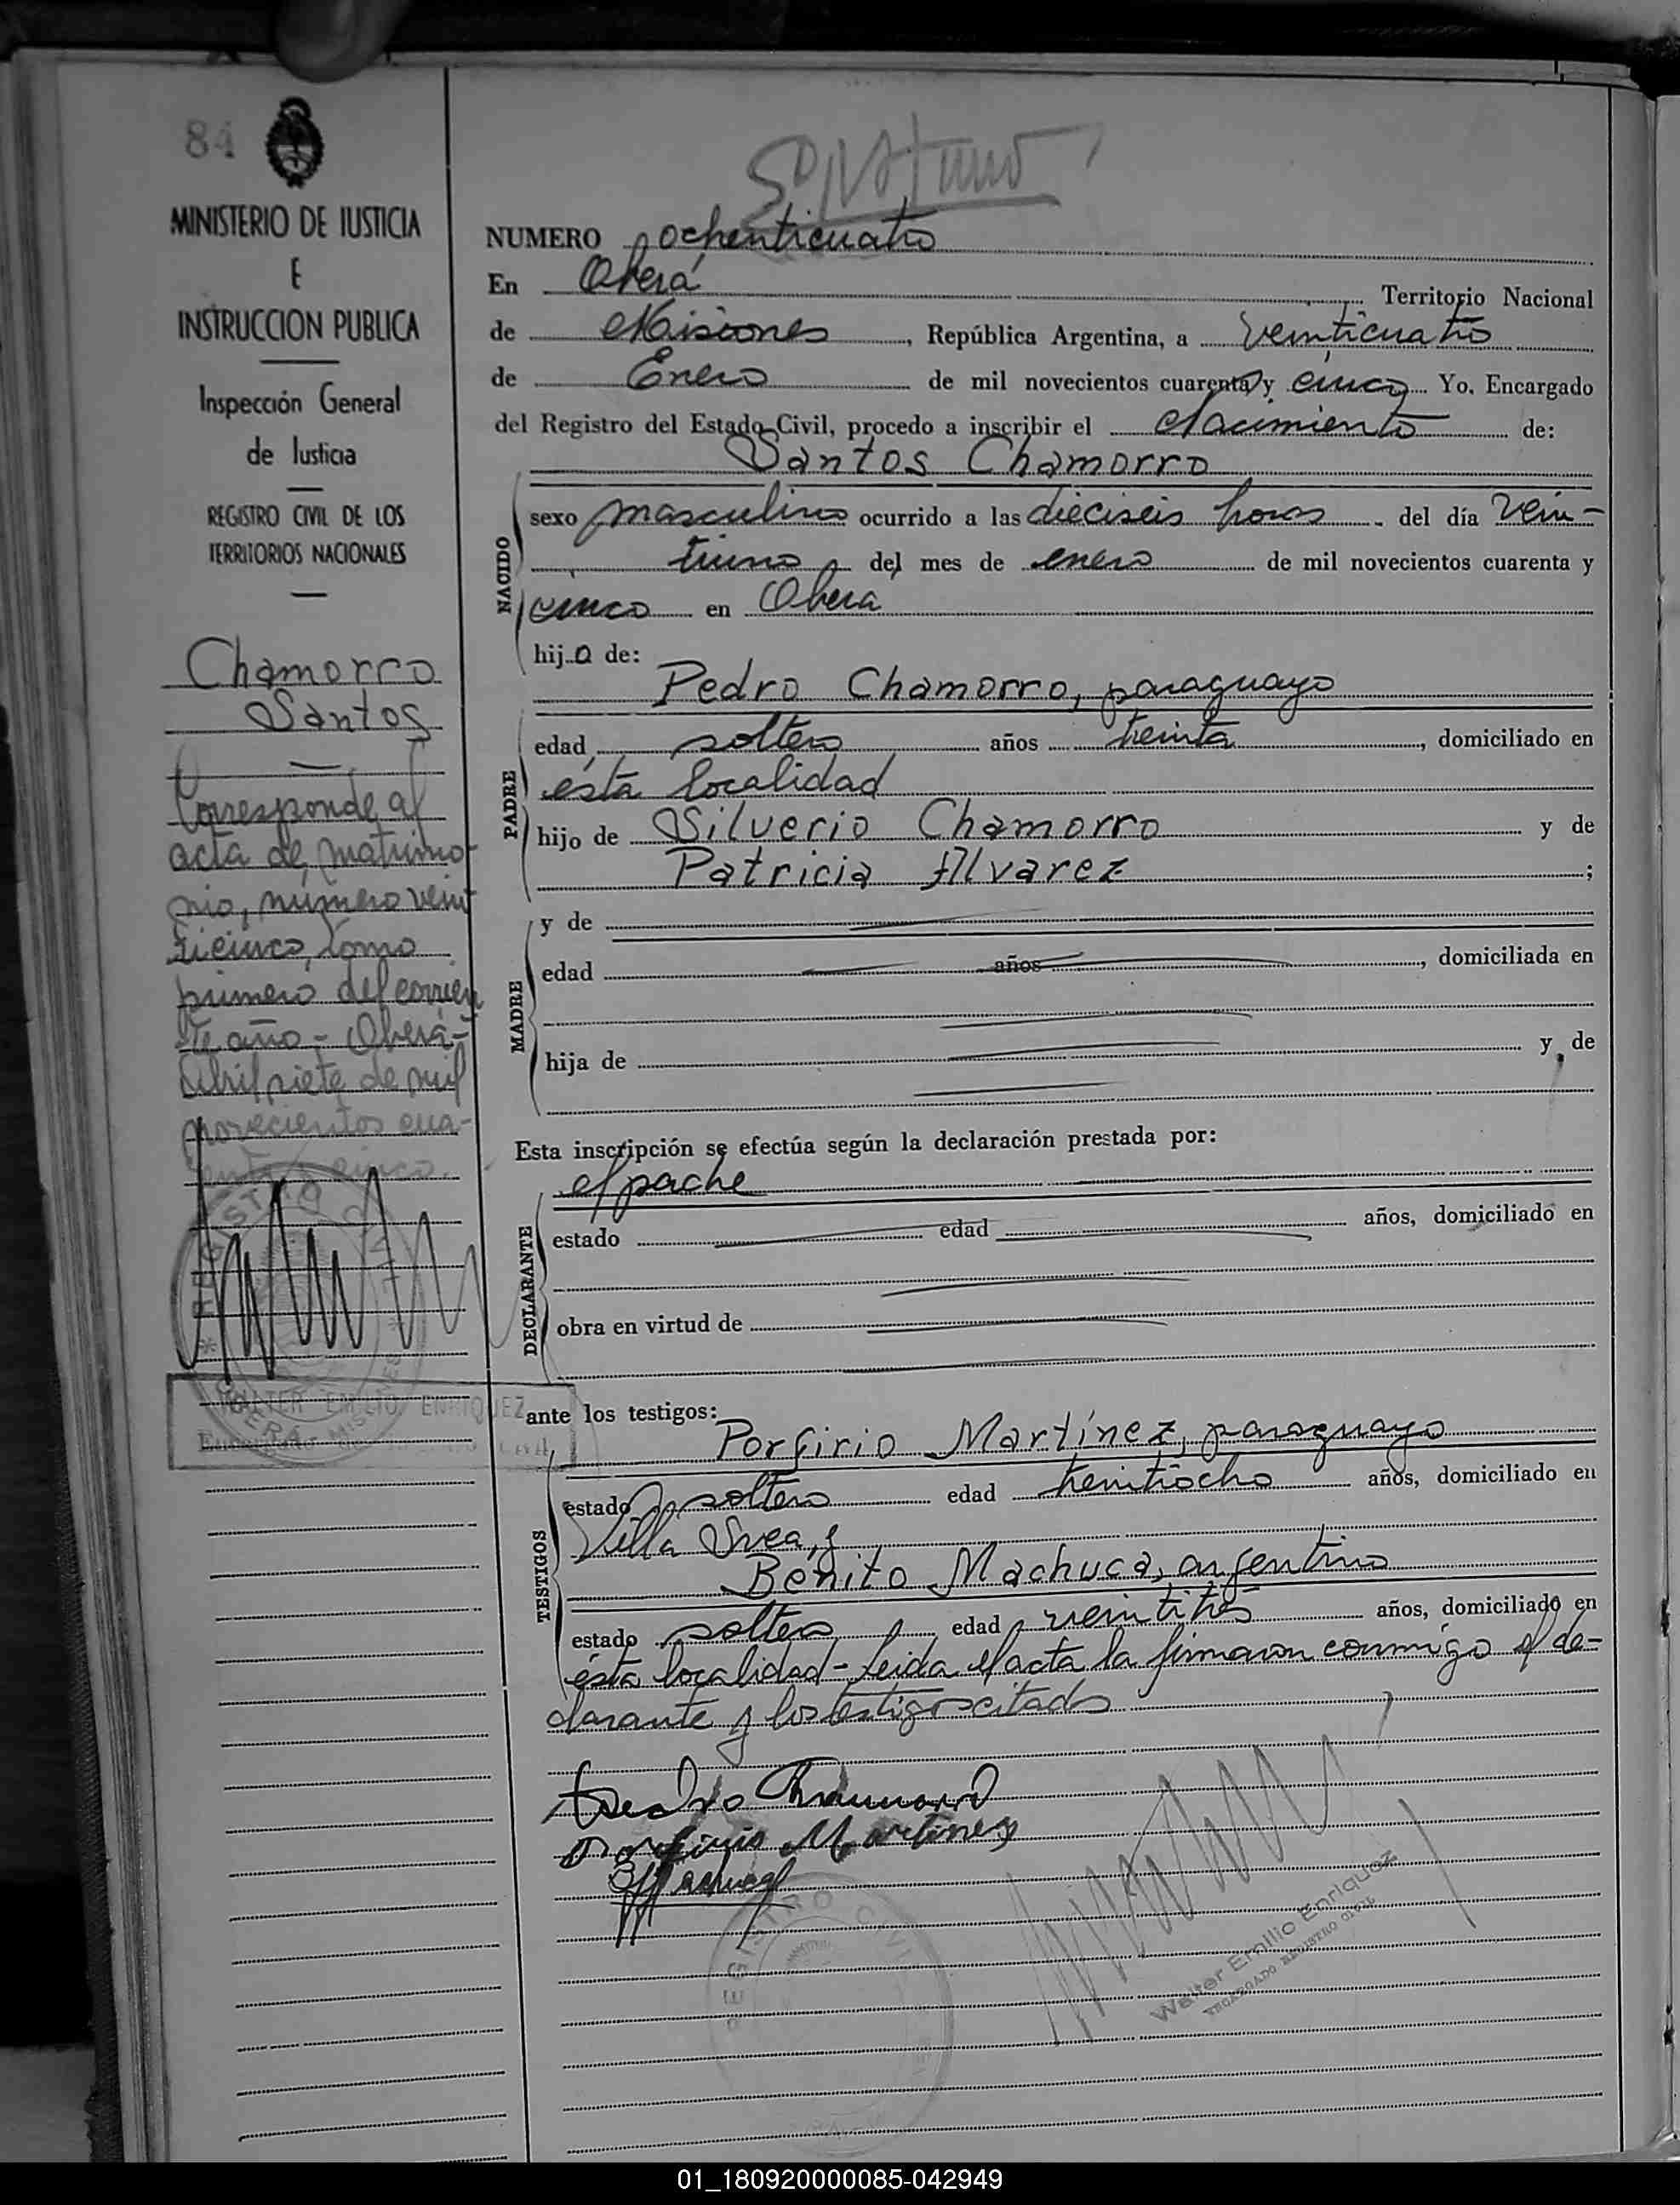 84
MINISTERIO DE JUSTICIA
E
INSTRUCCION PUBLICA
Inspección General
de Justicia
REGISTRO CIVIL DE LOS
TERRITORIOS NACIONALES
Chamorro
Santos
Corresponde al
acta de matrimo
nio, número vein
ticinco, tomo
primero del corrien
te año - Oberá -
abril siete de mil
novecientos cua-
renta y cinco.
WALTER EMILIO ENRIQUEZ
NUMERO ochenticuatro
En Oberá Territorio Nacional
de Misiones, República Argentina, a veinticuatro
de Enero de mil novecientos cuarenta y cinco Yo, Encargado
del Registro del Estado Civil, procedo a inscribir el Nacimiento de:
Santos Chamorro
NACIDO
sexo masculino ocurrido a las dieciseis horas del día vein-
tiuno del mes de enero de mil novecientos cuarenta y
cinco en Oberá
hijo de:
Pedro Chamorro, paraguayo
PADRE
edad soltero años treinta, domiciliado en
ésta localidad
hijo de Silverio Chamorro y de
Patricia Alvarez ;
MADRE
y de
edad años, domiciliada en
hija de y de
Esta inscripción se efectúa según la declaración prestada por:
el padre
DECLARANTE
estado edad años, domiciliado en
obra en virtud de
ante los testigos:
Porfirio Martínez, paraguayo
TESTIGOS
estado soltero edad treintiocho años, domiciliado en
Villa Svea, y
Benito Machuca, argentino
estado soltero edad veintitrés años, domiciliado en
ésta localidad - Leida el acta la firmaron conmigo el de-
clarante y los testigos citados
Pedro Chamorro
Porfirio Martinez
Walter Emilio Enriquez
ENCARGADO REGISTRO CIVIL
01_180920000085-042949